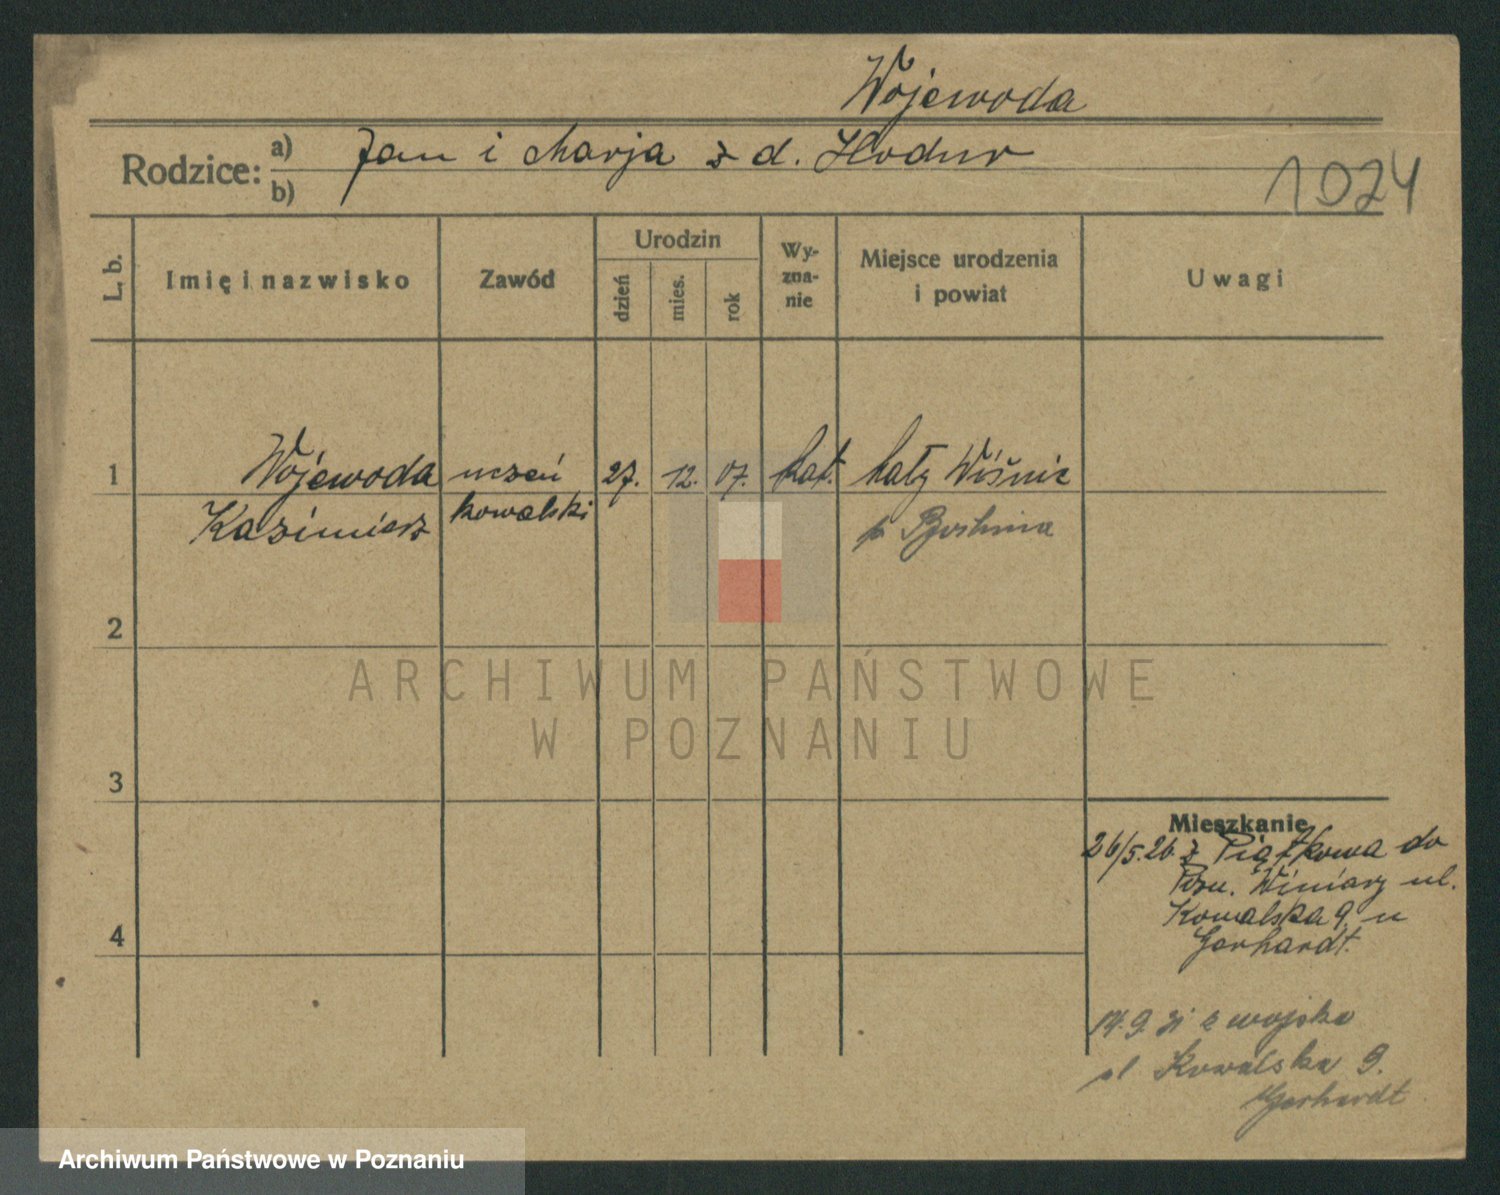 Wojewoda
Rodzice: a) Jan i Marja z d. Hodur
b)
1024
L. b.
Imię i nazwisko
Zawód
Urodzin
dzień
mies.
rok
Wy-
zna-
nie
Miejsce urodzenia
i powiat
Uwagi
1
Wojewoda uczeń 27. 12. 07. kat. Mały Wiśnic
Kazimierz kowalski p. Bochnia
2
3
4
Mieszkanie
26/5.26 z Piątkowa do
Pozn. Winiary ul.
Kowalska 9 u
Gerhardt.
14.9.31 z wojska
ul Kowalska 9.
Gerhardt
ARCHIWUM PAŃSTWOWE
W POZNANIU
Archiwum Państwowe w Poznaniu